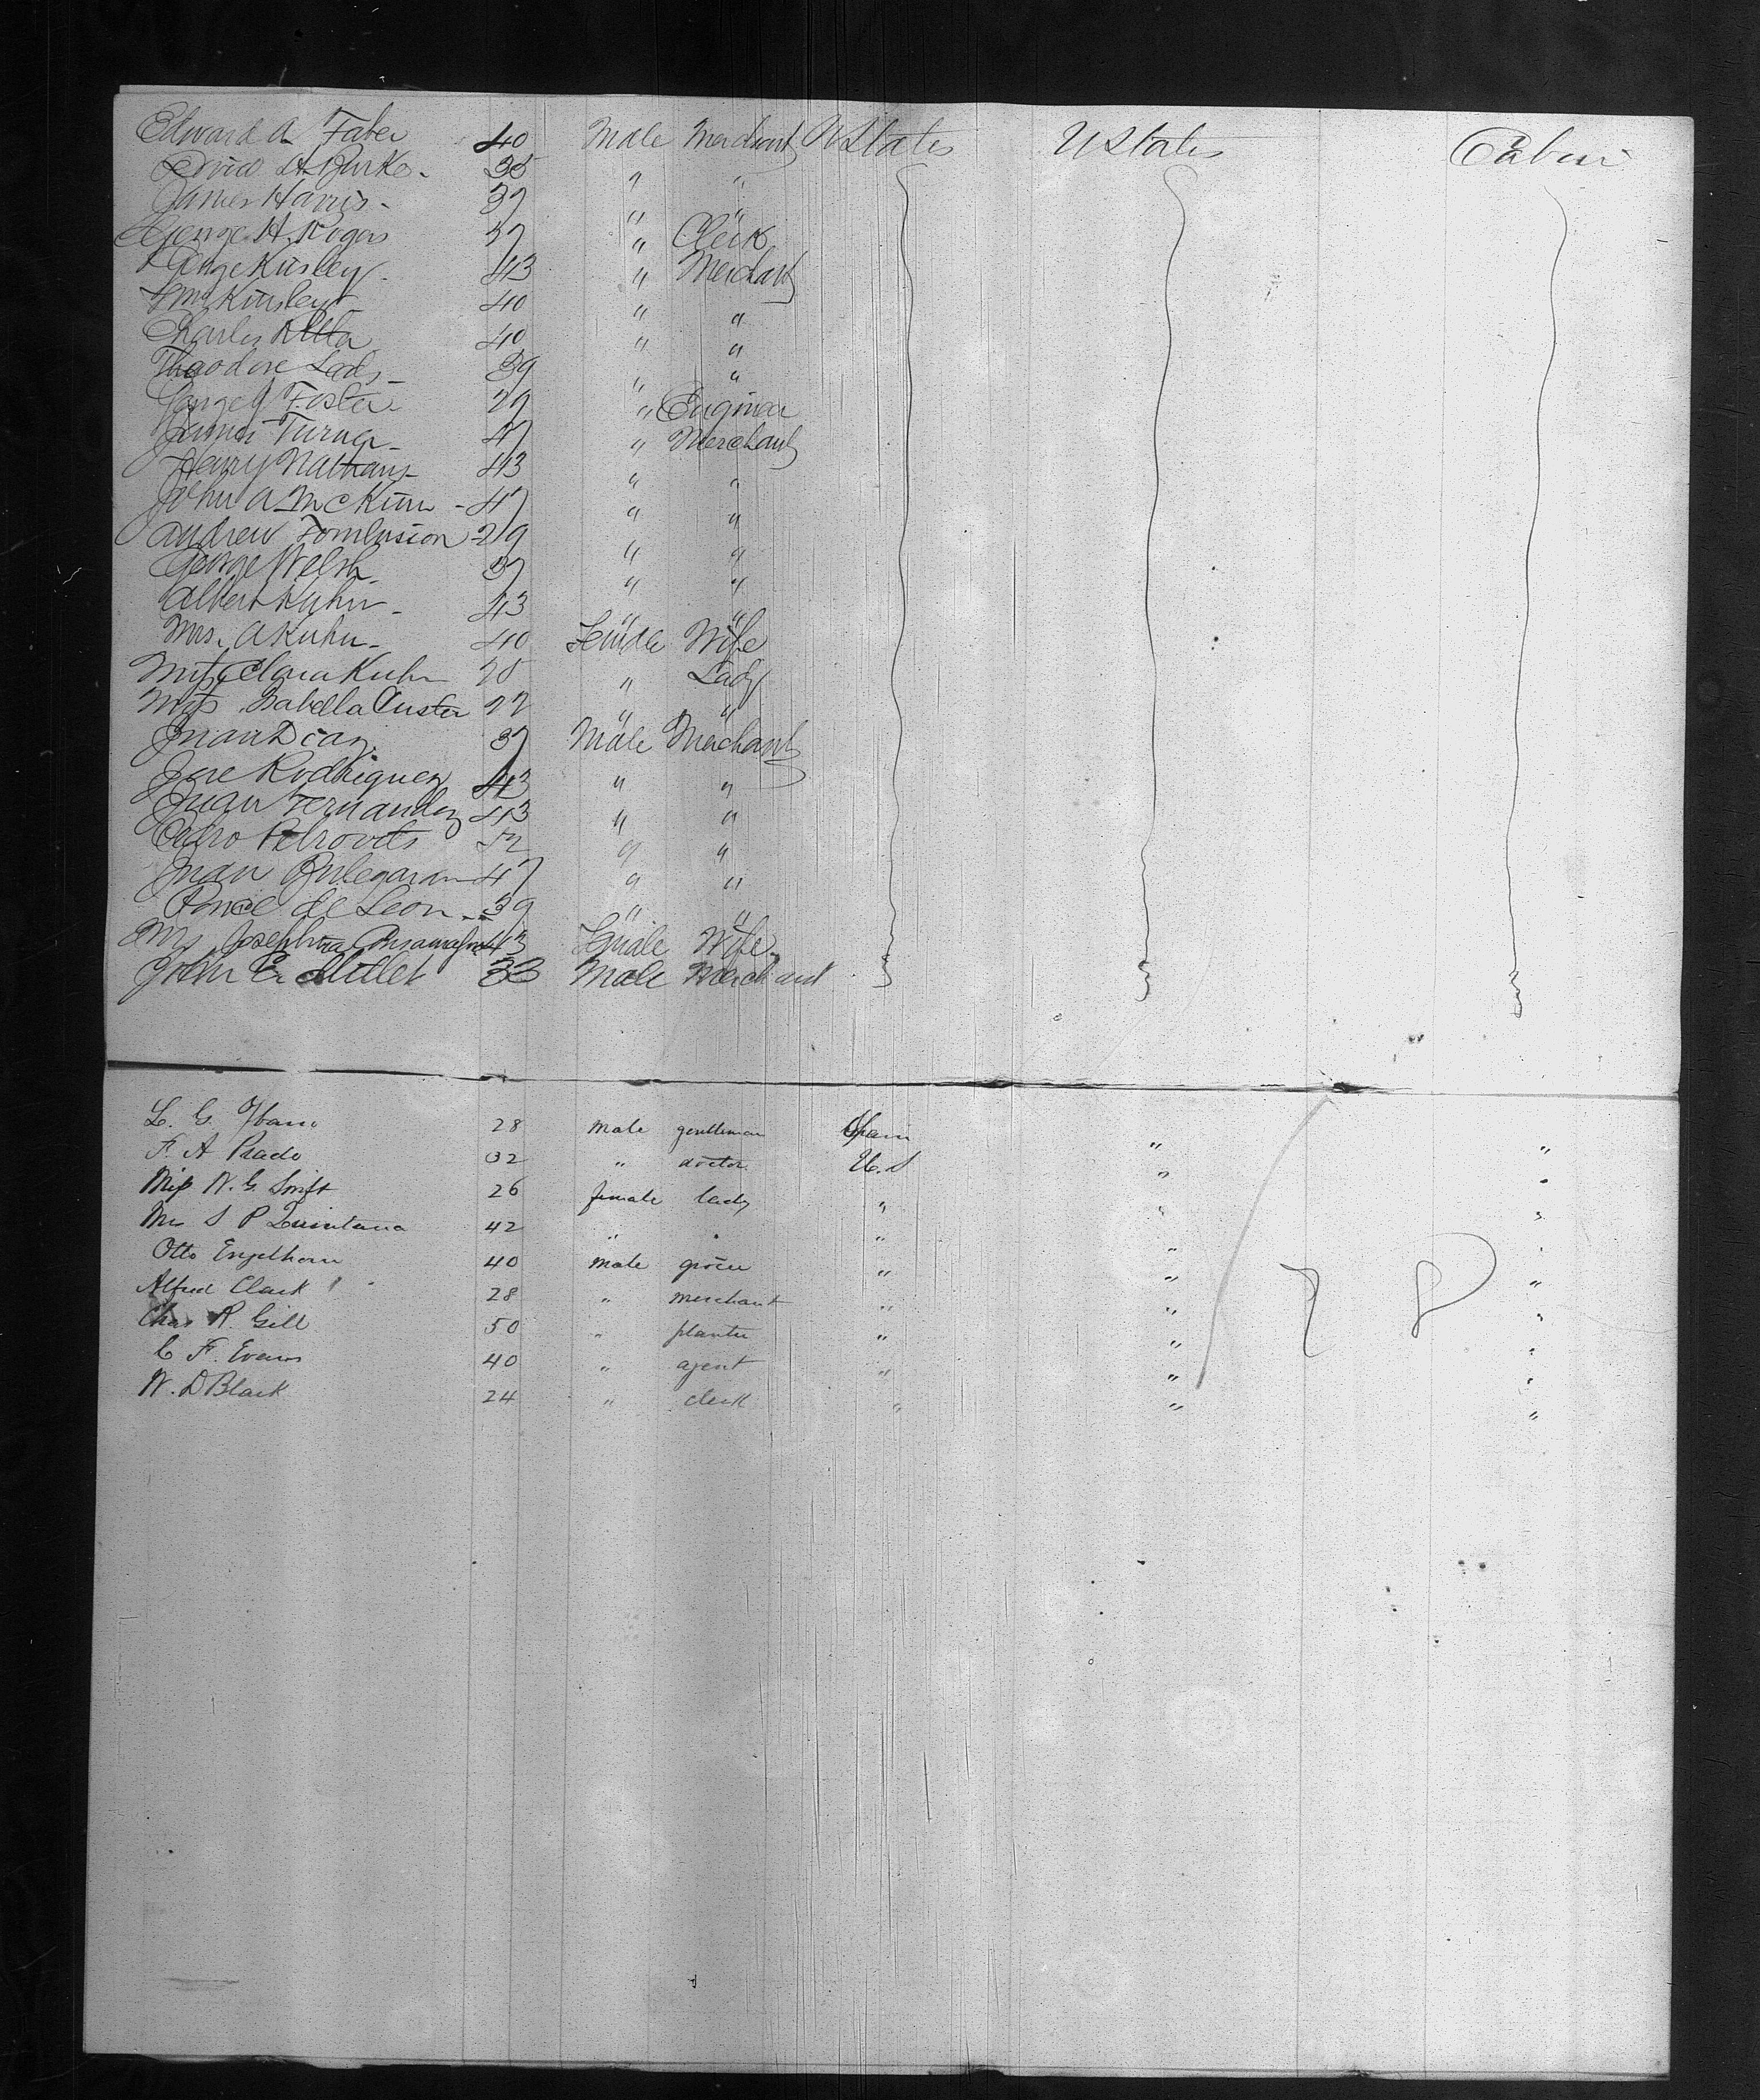 Edward A Faber 40 Male Merchant U States U States Cabin
A. Burke 35 " "
James Harris 37 " "
George H. Rogers 37 " Clerk
George Kinsley 43 " Merchant
Kinsley 40 " "
Charles 40 " "
Theodore 39 " "
George J Foster 29 " Engineer
James Turner 47 " Merchant
Henry Nathans 43 " "
John A McKim 47 " "
Andrew Tomlinsion 29 " "
George Welsh 37 " "
Albert Kuhn 43 " "
Mrs. A Kuhn 40 Female Wife
Miss Clara Kuhn 20 " Lady
Miss Isabella Custer 22 " "
Juan Diaz 37 Male Merchant
Jose Rodriguez 43 " "
Juan Fernandez 43 " "
Pedro Petrovits 52 " "
Juan 47 " "
Ponce de Leon 39 " "
Mrs Josephina 43 Female Wife
John E. Millet 33 Male Merchant
L. G. 28 male gentleman Spain " "
F. A Prado 32 " doctor U. S " "
Miss W. G. Swift 26 female lady " " "
Mrs S P Quintana 42 " " " " "
Otto Engelhorn 40 male grocer " " "
Alfred Clark 28 " merchant " " "
Chas R. Gill 50 " planter " " "
C F. Evans 40 " agent " " "
W. D Black 24 " clerk " " "